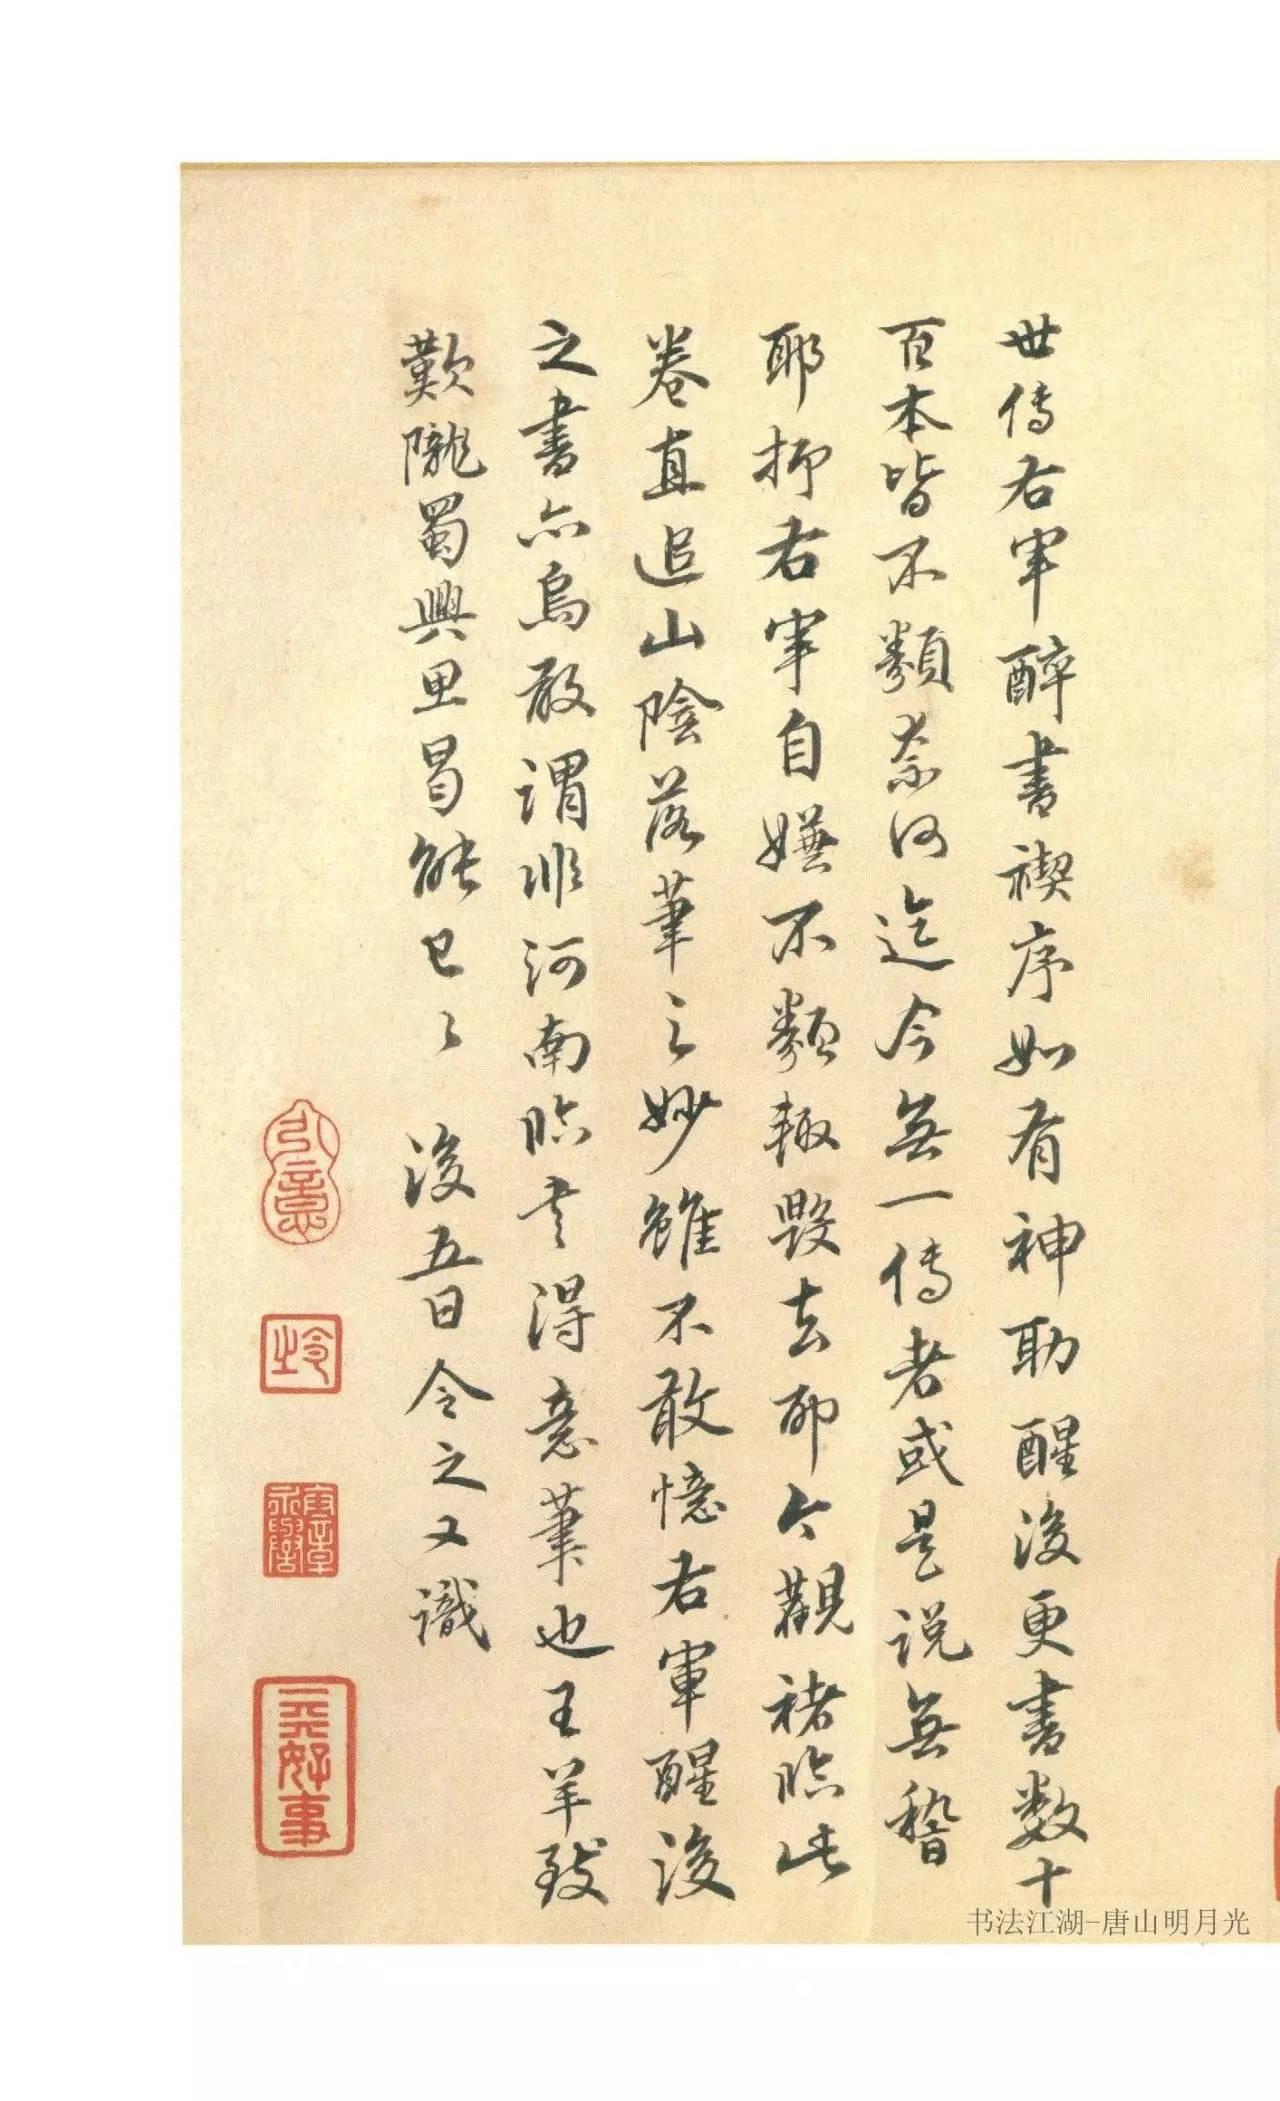 世傳右軍醉書禊序如有神助醒後更書數十
百本皆不類奈何迄今無一傳者或是說無稽
耶抑右軍自嫌不類輙毀去耶今觀褚臨此
卷直追山陰落筆之妙雖不敢憶右軍醒後
之書亦烏敢謂非河南臨書得意筆也王羊致
歎隴蜀興思曷能已已 後五日令之又識
云好事
书法江湖-唐山明月光